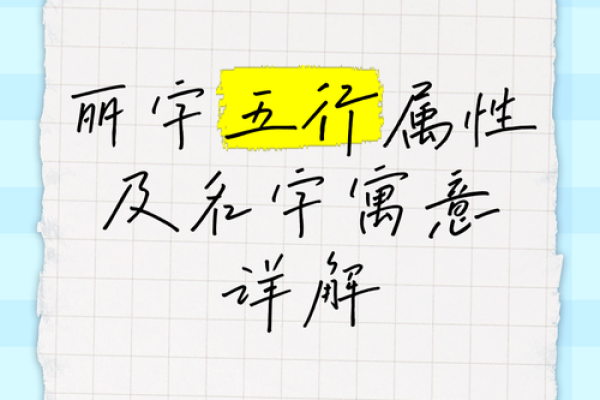 丽字五行属性
及名字寓意
详解